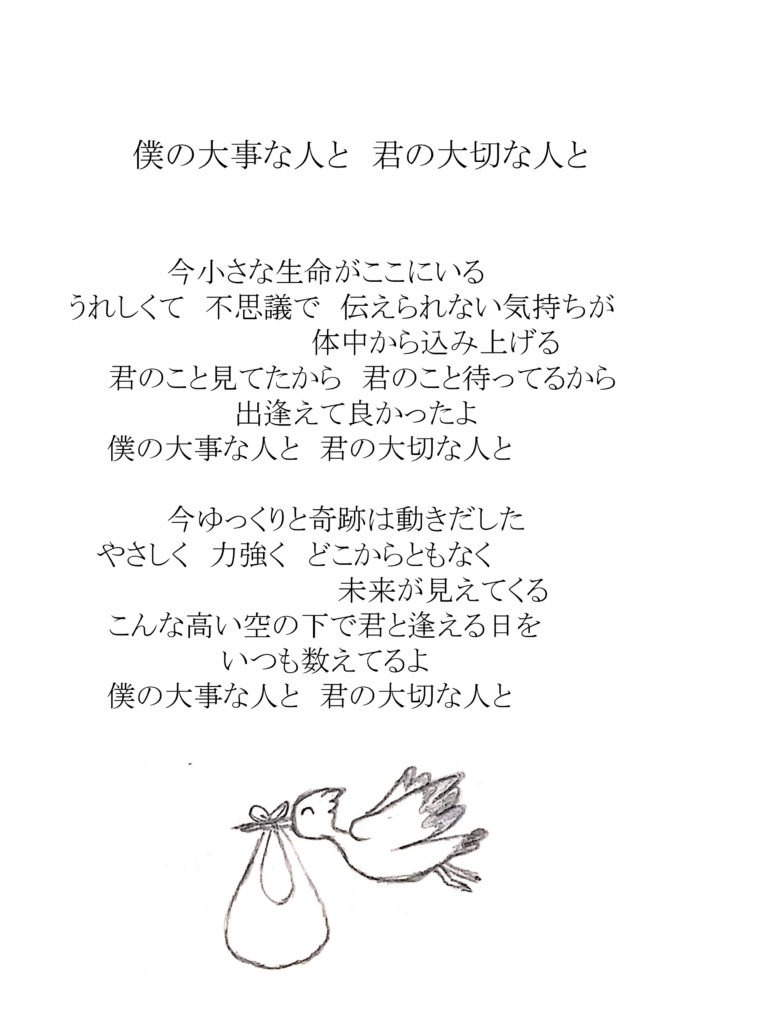 僕の大事な人と　君の大切な人と
今小さな生命がここにいる
うれしくて　不思議で　伝えられない気持ちが
体中から込み上げる
君のこと見てたから　君のこと待ってるから
出逢えて良かったよ
僕の大事な人と　君の大切な人と
今ゆっくりと奇跡は動きだした
やさしく　力強く　どこからともなく
未来が見えてくる
こんな高い空の下で君と逢える日を
いつも数えてるよ
僕の大事な人と　君の大切な人と